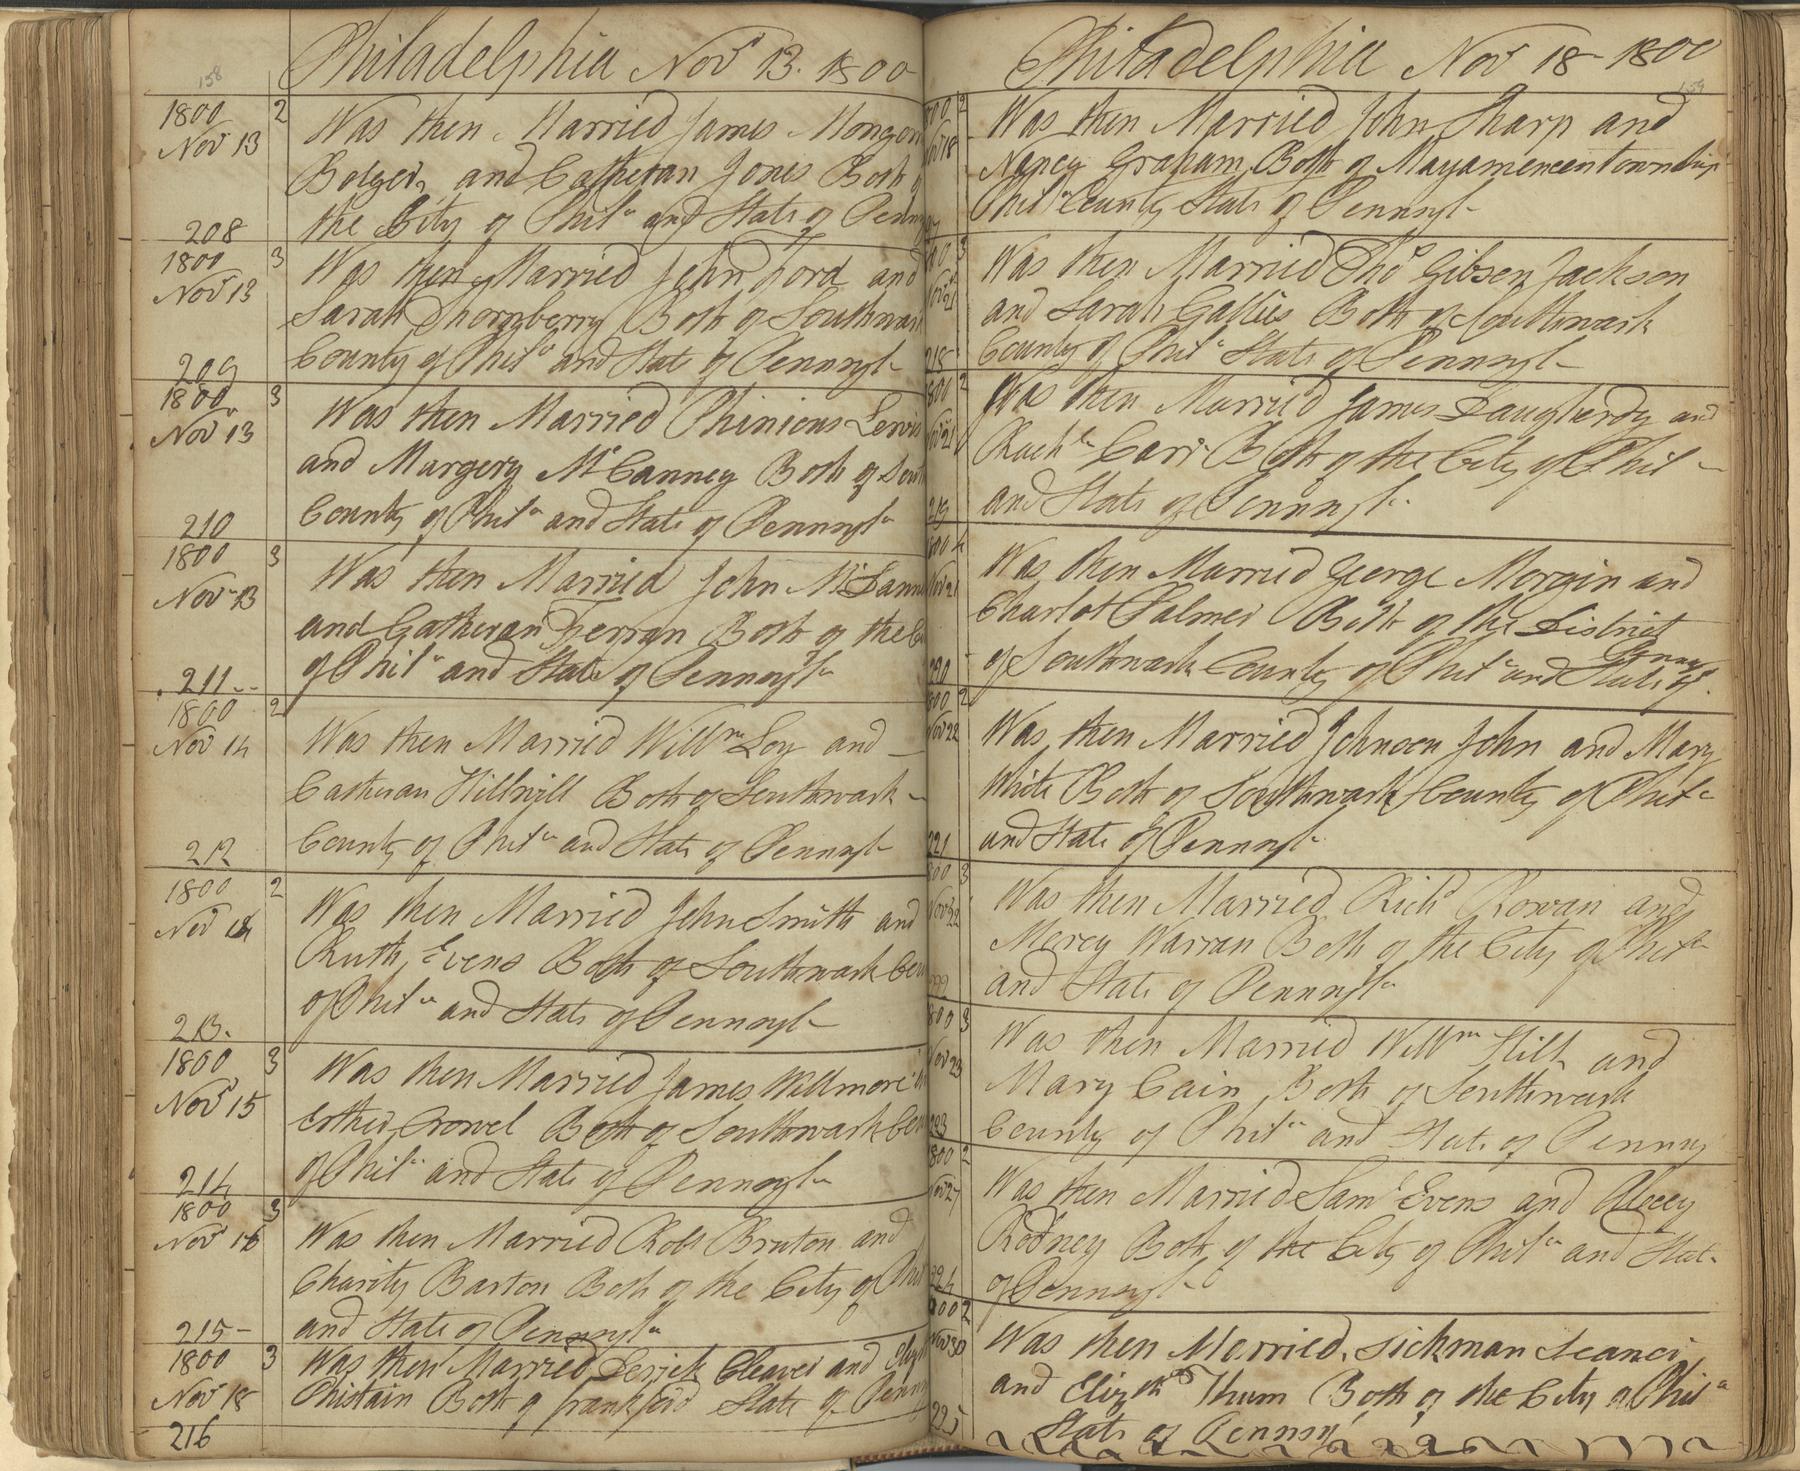 158
Philadelphia Novr 13. 1800
1800 2 Was then Married James
Novr 13 Bolger, and Catheran Jones Both of
208 the City of Phila and State of Penn
1800 3 Was then Married John Ford and
Novr 13 Sarah Thornberry Both of Southwark
209 County of Phila and State of Pennsyl
1800 3 Was then Married Phinious Lewis
Novr 13 and Margery McCanney Both of
210 County of Phila and State of Pennsyla
1800 3 Was then Married John
Novr 13 and Catheran Ferran Both of the
211 of Phila and State of Pennsyla
1800 2 Was then Married Willm Loy and
Novr 14 Catheran Both of Southwark
212 County of Phila and State of Pennsyl
1800 2 Was then Married John Smith and
Novr 14 Ruth Evens Both of Southwark
213. of Phila and State of Pennsyl
1800 3 Was then Married James Willmore
Novr 15 Esther Crowel Both of Southwark
214 of Phila and State of Pennsyla
1800 3 Was then Married Robt Bruton and
Novr 16 Charity Barton Both of the City of Phil
215 and State of Pennsyla
1800 3 Was then Married Cleaver and
Novr 18 Both of frankford State of Penn
216
159
Philadelphia Novr 18 1800
2 Was then Married John Sharp and
Nancy Graham Both of township
Phila County State of Pennsyl
3 Was then Married Thos Gibson Jackson
and Sarah Both of Southwark
218 County of Phila State of Pennsyl
800 2 Was then Married James Daugherdy and
Novr 21 Carr Both of the City of Phil
219 and State of Pennsyl
800 4 Was then Married George Morgin and
Novr 21 Charlot Palmer Both of the District
220 of Southwark County of Phila and State of Pennsy
800 2 Was then Married Johnson John and Mary
Novr 22 White Both of Southwark County of Phila
221 and State of Pennsyl
800 3 Was then Married Richd Rowan and
Novr 22 Mercy Warran Both of the City of Phila
222 and State of Pennsyl
800 3 Was then Married Willm Hill and
Novr 23 Mary Cain Both of Southwark
223 County of Phila and State of Pennsy
1800 2 Was then Married Saml Evens and
Novr 27 Rodney Both of the City of Phila and State
224 of Pennsyl
800 2 Was then Married.
Novr 30 and Elizth Thum Both of the City of Phila
225 State of Pennsy